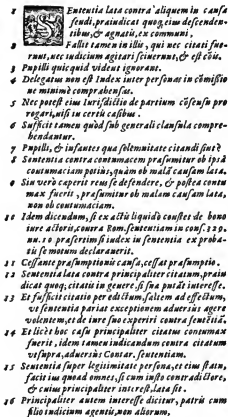 1 SEntentia lata contra aliquem in causa
fendi, praiudicat quoq; eius descenden-
tibus, & agnatis, ex communi.
2 Fallit tamen in illis, qui nec citati fue-
runt, nec iudicium agitari sciuerunt, & est cõis.
3 Pupilli quicquid videut ignorant.
4 Delegatus non est Index inter personas in cõmissio
ne minimè comprehensas.
5 Nec potest eius Iurisdictio de partium cõsensu pro
rogari, nisi in certis casibus.
6 Sufficit tamen quòd sub generali clausula compre-
hendantur.
7 Pupilli, & infantes qua solemnitate citandi sint
8 Sententia contra contumacem præsumitur ob ipsã
contumaciam potius, quàm ob malã causam lata,
9 Sin verò cæperit reus se defendere, & postea contu
max fuerit, præsumitur ob malam causam lata,
non ob contumaciam.
10 Idem dicendum, si ex actis liquidò constet de bono
iure actoris, contra Rom. sententiam in cons. 329.
nu. 10 præsertim si iudex in sententia ex proba-
tis se motum declarauerit.
11 Cessante præsumptionis causa, cessat præsumptio.
12 Sententia lata contra principaliter citatum, praiu
dicat quoq; citatis in genere, si sua putãt interesse.
13 Et sufficit citatio per edictum, saltem ad effectum,
vt sententia pariat exceptionem aduersùs agere
volentem, et de iure suo experiri contra sententiã.
14 Et licèt hoc casu principaliter citatus contumax
fuerit, idem tamen indicandum contra citatum
vt supra, aduersùs Contar. sententiam.
15 Sententia super legisimitate persona, et eius statu,
facit ius quoad omnes, si cum iusto contradictore,
& cuius principaliter interest, lata sit.
16 Principaliter autem interesse dicitur, patris cum
filio indicium agentis, non aliorum,